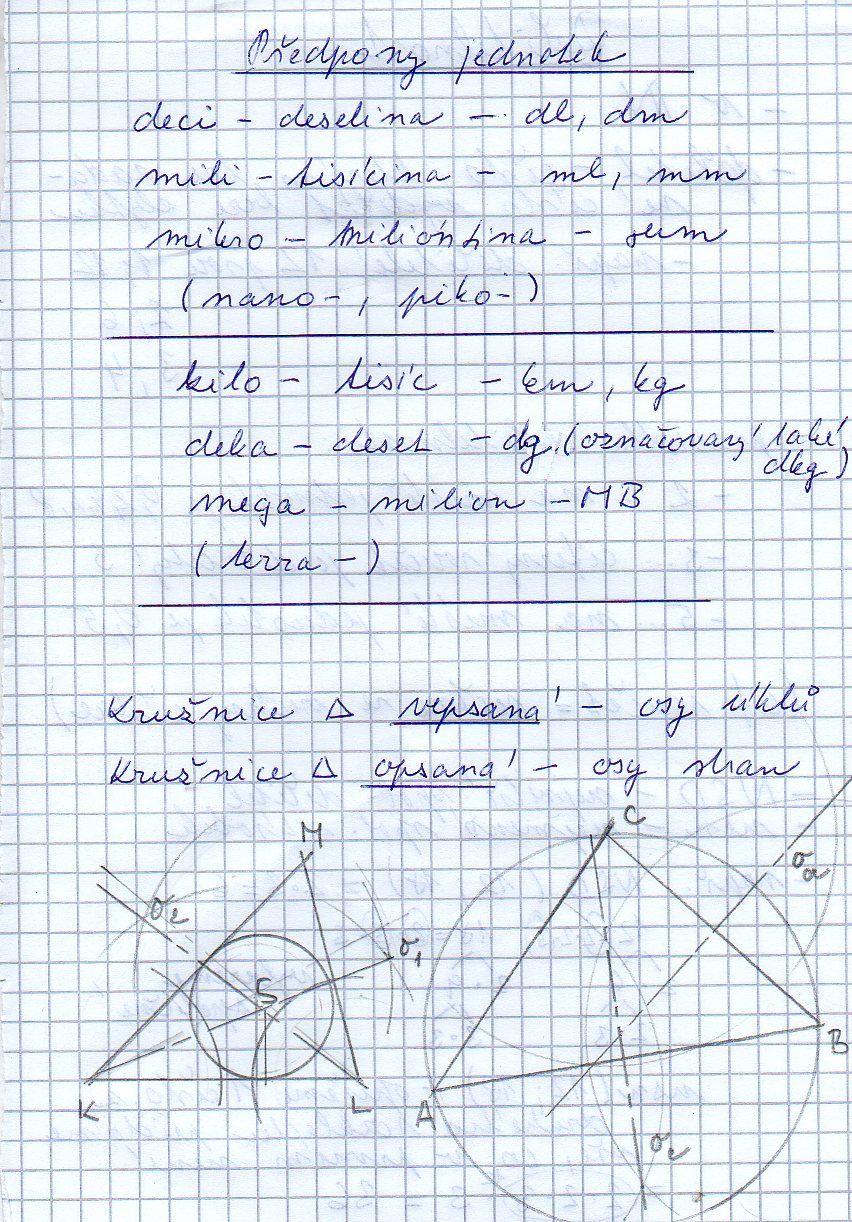 Předpony jednotek
deci - desetina - dl, dm
mili - tisícina - ml, mm
mikro - milióntina - μm
(nano-, piko-)
kilo - tisíc - km, kg
deka - deset - dg (označovaný také
dkg)
mega - milion - MB
(terra-)
Kružnice △ vepsaná - osy úhlů
Kružnice △ opsaná - osy stran
M
C
o₂
oₐ
o₁
S
B
K
L
A
o_c